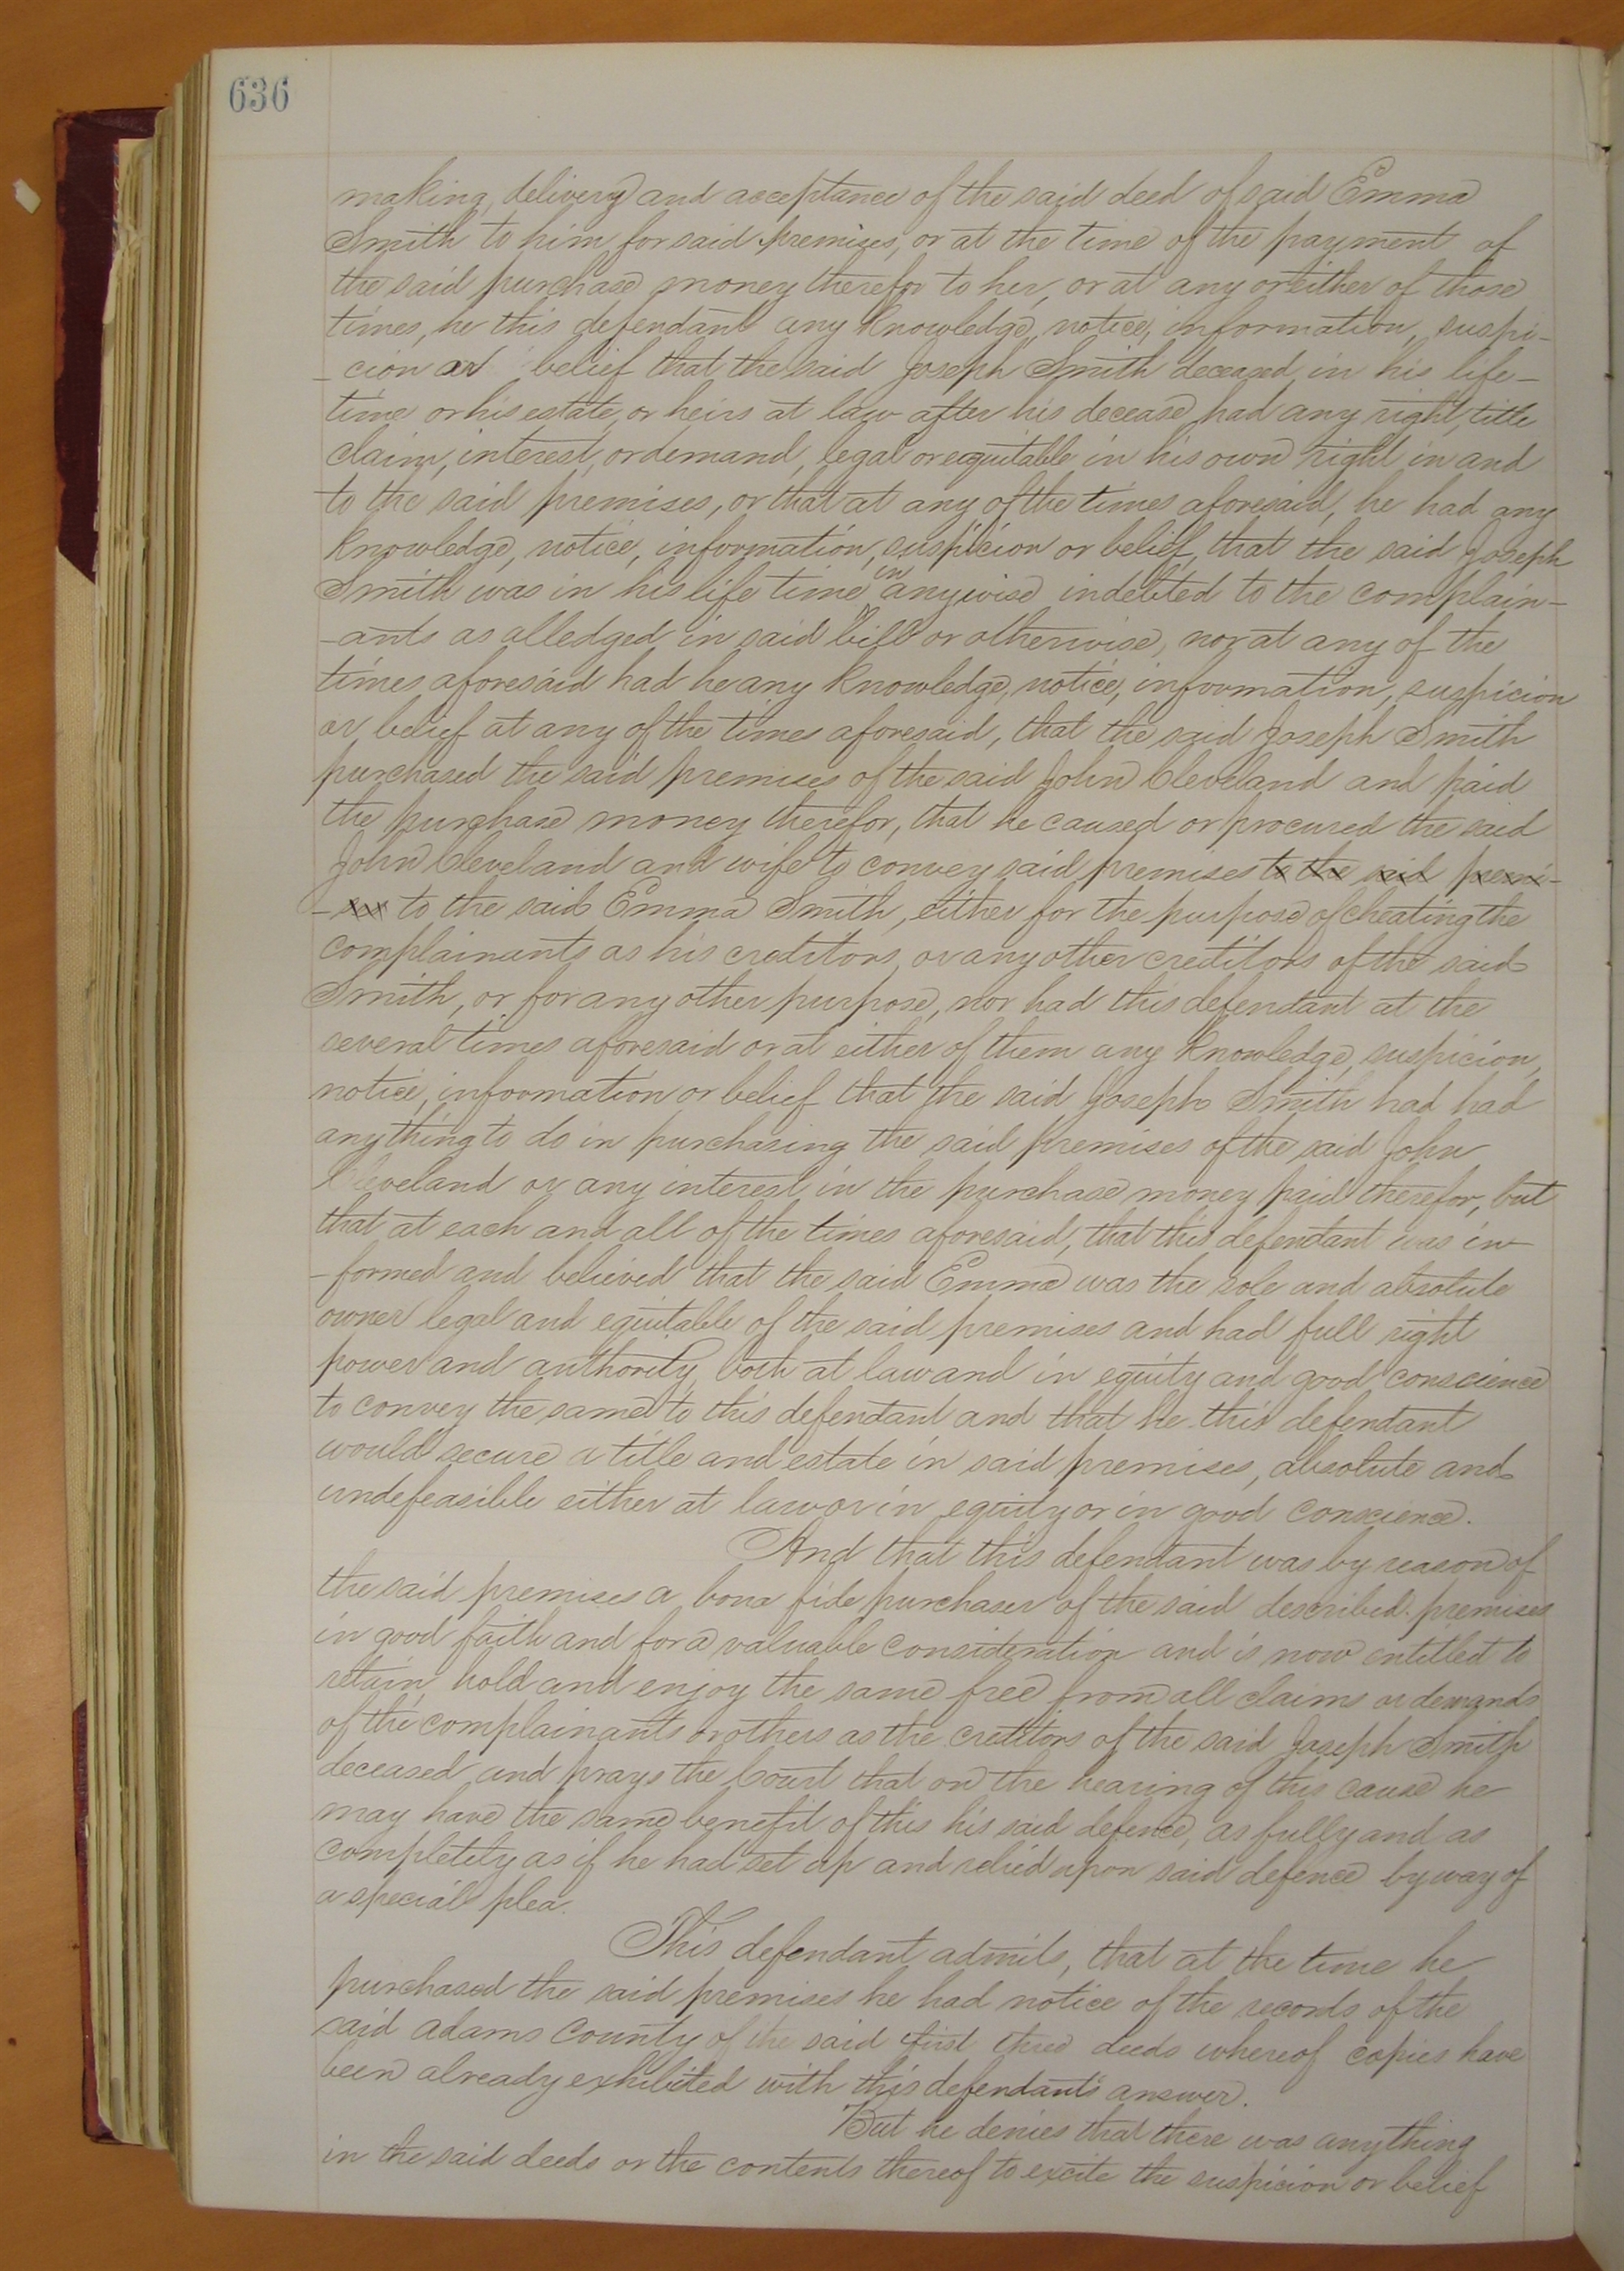 636
making, delivery and acceptance of the said deed of said Emma
Smith to him for said premises, or at the time of the payment of
the said purchase money therefor to her, or at any or either of those
times, he this defendant any knowledge, notice, information, suspi-
-cion or belief that the said Joseph Smith deceased in his life-
time or his estate, or heirs at law after his decease had any right, title
claim, interest, or demand, legal or equitable in his own right in and
to the said premises, or that at any of the times aforesaid, he had any
knowledge, notice, information, suspicion or belief, that the said Joseph
Smith was in his life time in anywise indebted to the complain-
-ants as alledged in said bill or otherwise, nor at any of the
times aforesaid had he any knowledge, notice, information, suspicion
or belief at any of the times aforesaid, that the said Joseph Smith
purchased the said premises of the said John Cleveland and paid
the purchase money therefor, that he caused or procured the said
John Cleveland and wife to convey said premises to the said premi-
-ses to the said Emma Smith, either for the purpose of cheating the
complainants as his creditors, or any other creditors of the said
Smith, or for any other purpose, nor had this defendant at the
several times aforesaid or at either of them any knowledge, suspicion,
notice, information or belief that the said Joseph Smith had had
anything to do in purchasing the said premises of the said John
Cleveland or any interest in the purchase money paid therefor, but
that at each and all of the times aforesaid, that this defendant was in-
-formed and believed that the said Emma was the sole and absolute
owner legal and equitable of the said premises and had full right
power and authority, both at law and in equity and good conscience
to convey the same to this defendant and that he this defendant
would secure a title and estate in said premises, absolute and
undefeasible either at law or in equity or in good conscience.
And that this defendant was by reason of
the said premises a bona fide purchaser of the said described premises
in good faith and for a valuable consideration and is now entitled to
retain, hold and enjoy the same free from all claims or demands
of the complainants or others as the creditors of the said Joseph Smith
deceased and prays the Court that on the hearing of this cause he
may have the same benefit of this his said defence, as fully and as
completely as if he had set up and relied upon said defence by way of
a special plea.
This defendant admits, that at the time he
purchased the said premises he had notice of the records of the
said Adams County of the said first three deeds whereof copies have
been already exhibited with this defendants answer.
But he denies that there was anything
in the said deeds or the contents thereof to excite the suspicion or belief